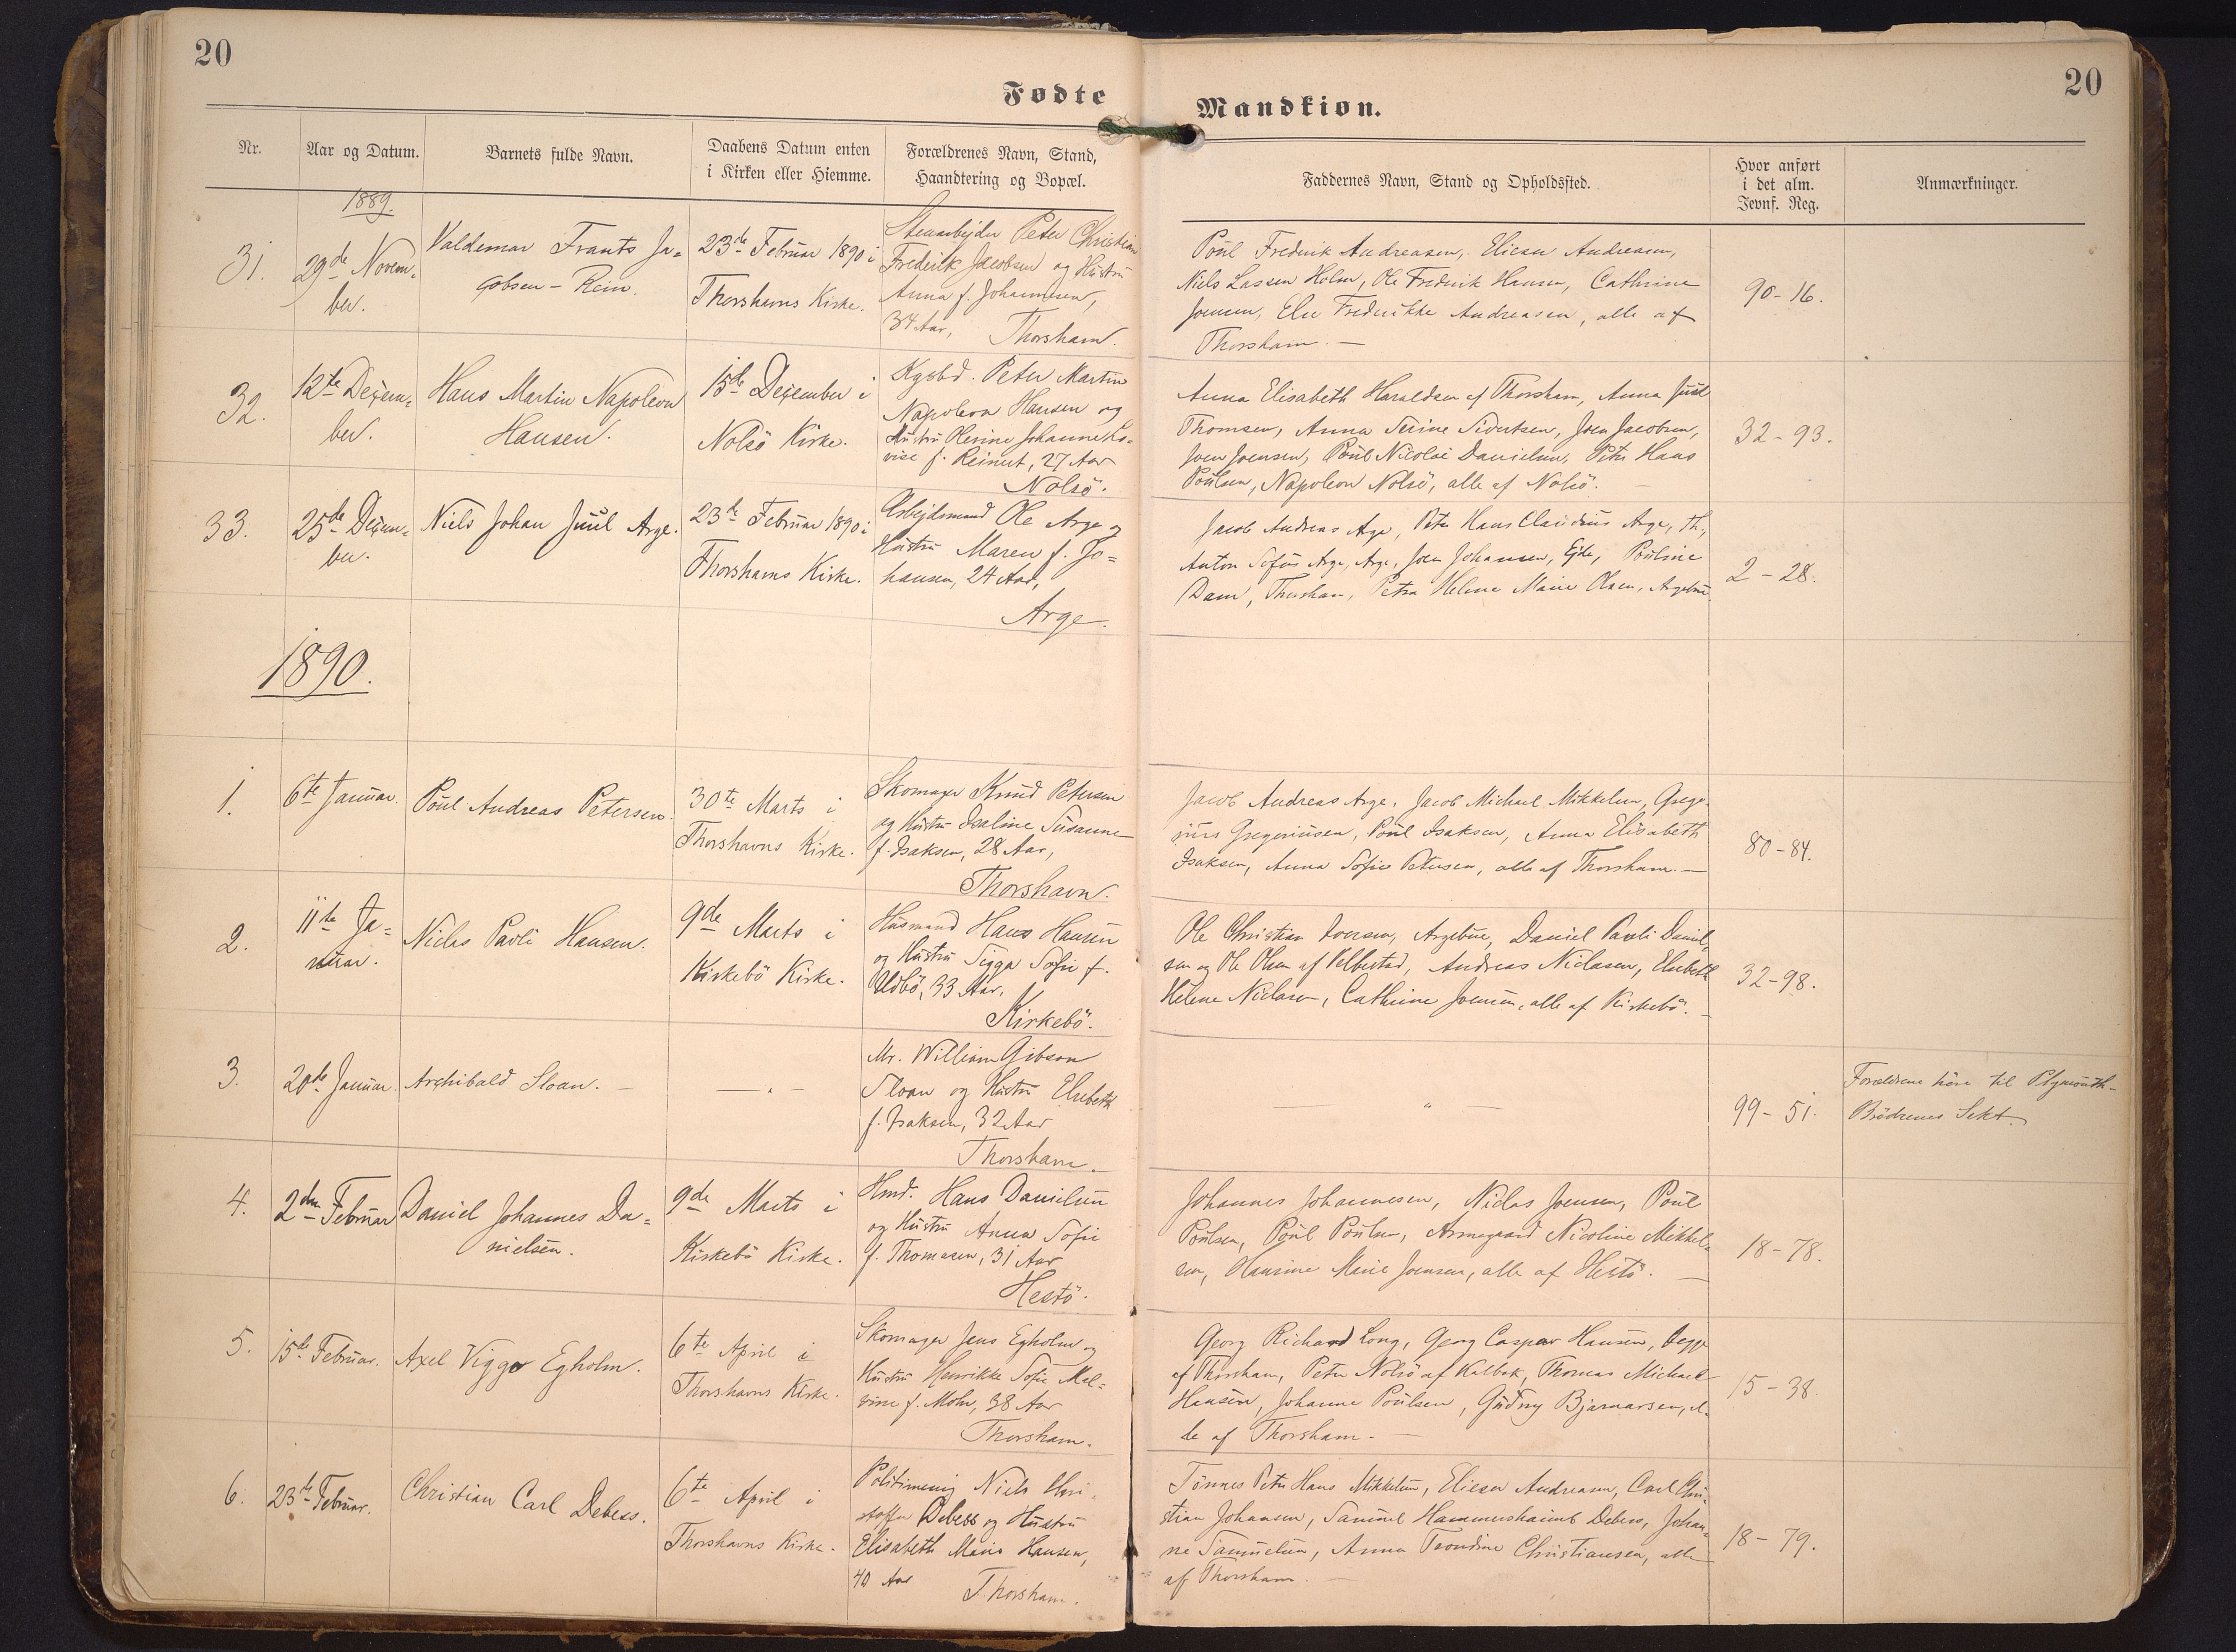 20
20
Fødte
Mandkiøn.
Nr.
Aar og Datum.
Barnets fulde Navn.
Daabens Datum enten
i Kirken eller Hiemme.
Forældrenes Navn, Stand,
Haandtering og Bopæl.
Faddernes Navn, Stand og Opholdssted.
Hvor anført
i det alm.
Jevnf. Reg.
Anmærkninger.
1889.
31.
29de Novem-
ber.
Valdemar Frants Ja=
cobsen - Rein.
23de Februar 1890 i
Thorshavns Kirke.
Stenarbejder Peter Christian
Frederik Jacobsen og Hustru
Anna f. Johannesen,
34 Aar, Thorshavn.
Poul Frederik Andreasen, Elieser Andreasen,
Niels Lassen Holm, Ole Frederik Hansen, Cathrine
Joensen, Else Frederikke Andreasen, alle af
Thorshavn. —
90-16.
32.
12te Decem=
ber.
Hans Martin Napoleon
Hansen.
15de December i
Nolsö Kirke.
Kgsbd. Peter Martin
Napoleon Hansen og
Hustru Olevine Johanne Lo=
vise f. Reinert, 27 Aar
Nolsö.
Anna Elisabeth Haraldsen af Thorshavn, Anna Juul
Thomsen, Anna Serine Sivertsen, Joen Jacobsen,
Joen Joensen, Poul Nicolai Danielsen, Peter Hans
Poulsen, Napoleon Nolsö, alle af Nolsö. —
32-93.
33.
25de Decem=
ber.
Niels Johan Juul Arge.
23de Februar 1890 i
Thorshavns Kirke.
Arbejdsmand Ole Arge og
Hustru Maren f. Jo=
hansen, 24 Aar,
Arge.
Jacob Andreas Arge, Peter Hans Claudius Arge, Th.,
Anton Sofus Arge, Arge, Joen Johansen, Ejde, Pouline
Dam, Thorshavn, Petra Helene Marie Olsen, Argebue.
2-28.
1890.
1.
6te Januar.
Poul Andreas Petersen.
30te Marts i
Thorshavns Kirke.
Skomager Knud Petersen
og Hustru Isaline Susanne
f. Isaksen, 28 Aar,
Thorshavn.
Jacob Andreas Arge, Jacob Michael Mikkelsen, Grego-
rius Gregoriusen, Poul Isaksen, Anna Elisabeth
Isaksen, Anna Sofie Petersen, alle af Thorshavn. —
80-84.
2.
11te Ja=
nuar.
Niclas Pauli Hansen.
9de Marts i
Kirkebö Kirke.
Husmand Hans Hansen
og Hustru Sigga Sofie f.
Udbö, 33 Aar,
Kirkebö.
Ole Christian Joensen, Argebue, Daniel Pauli Daniel=
sen og Ole Olsen af Velbestad, Andreas Niclasen, Elsebeth
Helene Niclasen, Cathrine Joensen, alle af Kirkebö. —
32-98.
3.
20de Januar.
Archibald Sloan. —
— " —
Mr. William Gibson
Sloan og Hustru Elsebeth
f. Isaksen, 32 Aar
Thorshavn.
— " —
99-51.
Forældrene höre til Plymouth-
Brödrenes Sekt.
4.
2den Februar
Daniel Johannes Da=
nielsen.
9de Marts i
Kirkebö Kirke.
Hmd. Hans Danielsen
og Hustru Anna Sofie
f. Thomasen, 31 Aar
Hestö.
Johannes Johannesen, Niclas Joensen, Poul
Poulsen, Poul Poulsen, Armegaard Nicoline Mikkel=
sen, Hansine Marie Joensen, alle af Hestö. —
18-78.
5.
15de Februar.
Axel Viggo Egholm.
6te April i
Thorshavns Kirke.
Skomager Jens Egholm og
Hustru Henrikke Sofie Mal=
vine f. Mohr, 38 Aar
Thorshavn.
Georg Richard Long, Georg Caspar Hansen, begge
af Thorshavn, Peter Nolsö af Kalbak, Thomas Michael
Hansen, Johanne Poulsen, Gudny Bjarnarsen, al-
le af Thorshavn. —
15-38.
6.
23de Februar.
Christian Carl Debess.
6te April i
Thorshavns Kirke.
Politimenig Niels Chri-
stoffer Debess og Hustru
Elisabeth Maria Hansen,
40 Aar Thorshavn.
Tönnes Peter Hans Mikkelsen, Elieser Andreasen, Carl Chri-
stian Johansen, Samuel Hammershaimb Debess, Johan-
ne Samuelsen, Anna Trondine Christiansen, alle
af Thorshavn. —
18-79.